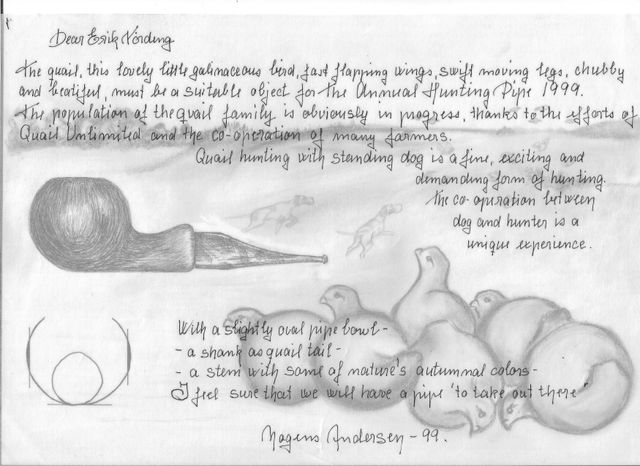 Dear Erik Nörding
The quail, this lovely little galinaceous bird, fast flapping wings, swift moving legs, chubby
and beatiful, must be a suitable object for the Annual Hunting Pipe 1999.
The population of the quail family is obviously in progress, thanks to the efforts of
Quail Unlimited and the co-operation of many farmers.
Quail hunting with standing dog is a fine, exciting and
demanding form of hunting.
The co-operation between
dog and hunter is a
unique experience.
With a slightly oval pipe bowl -
- a shank as quail tail -
- a stem with some of nature's autumnal colors -
I feel sure that we will have a pipe "to take out there"
Mogens Andersen - 99.